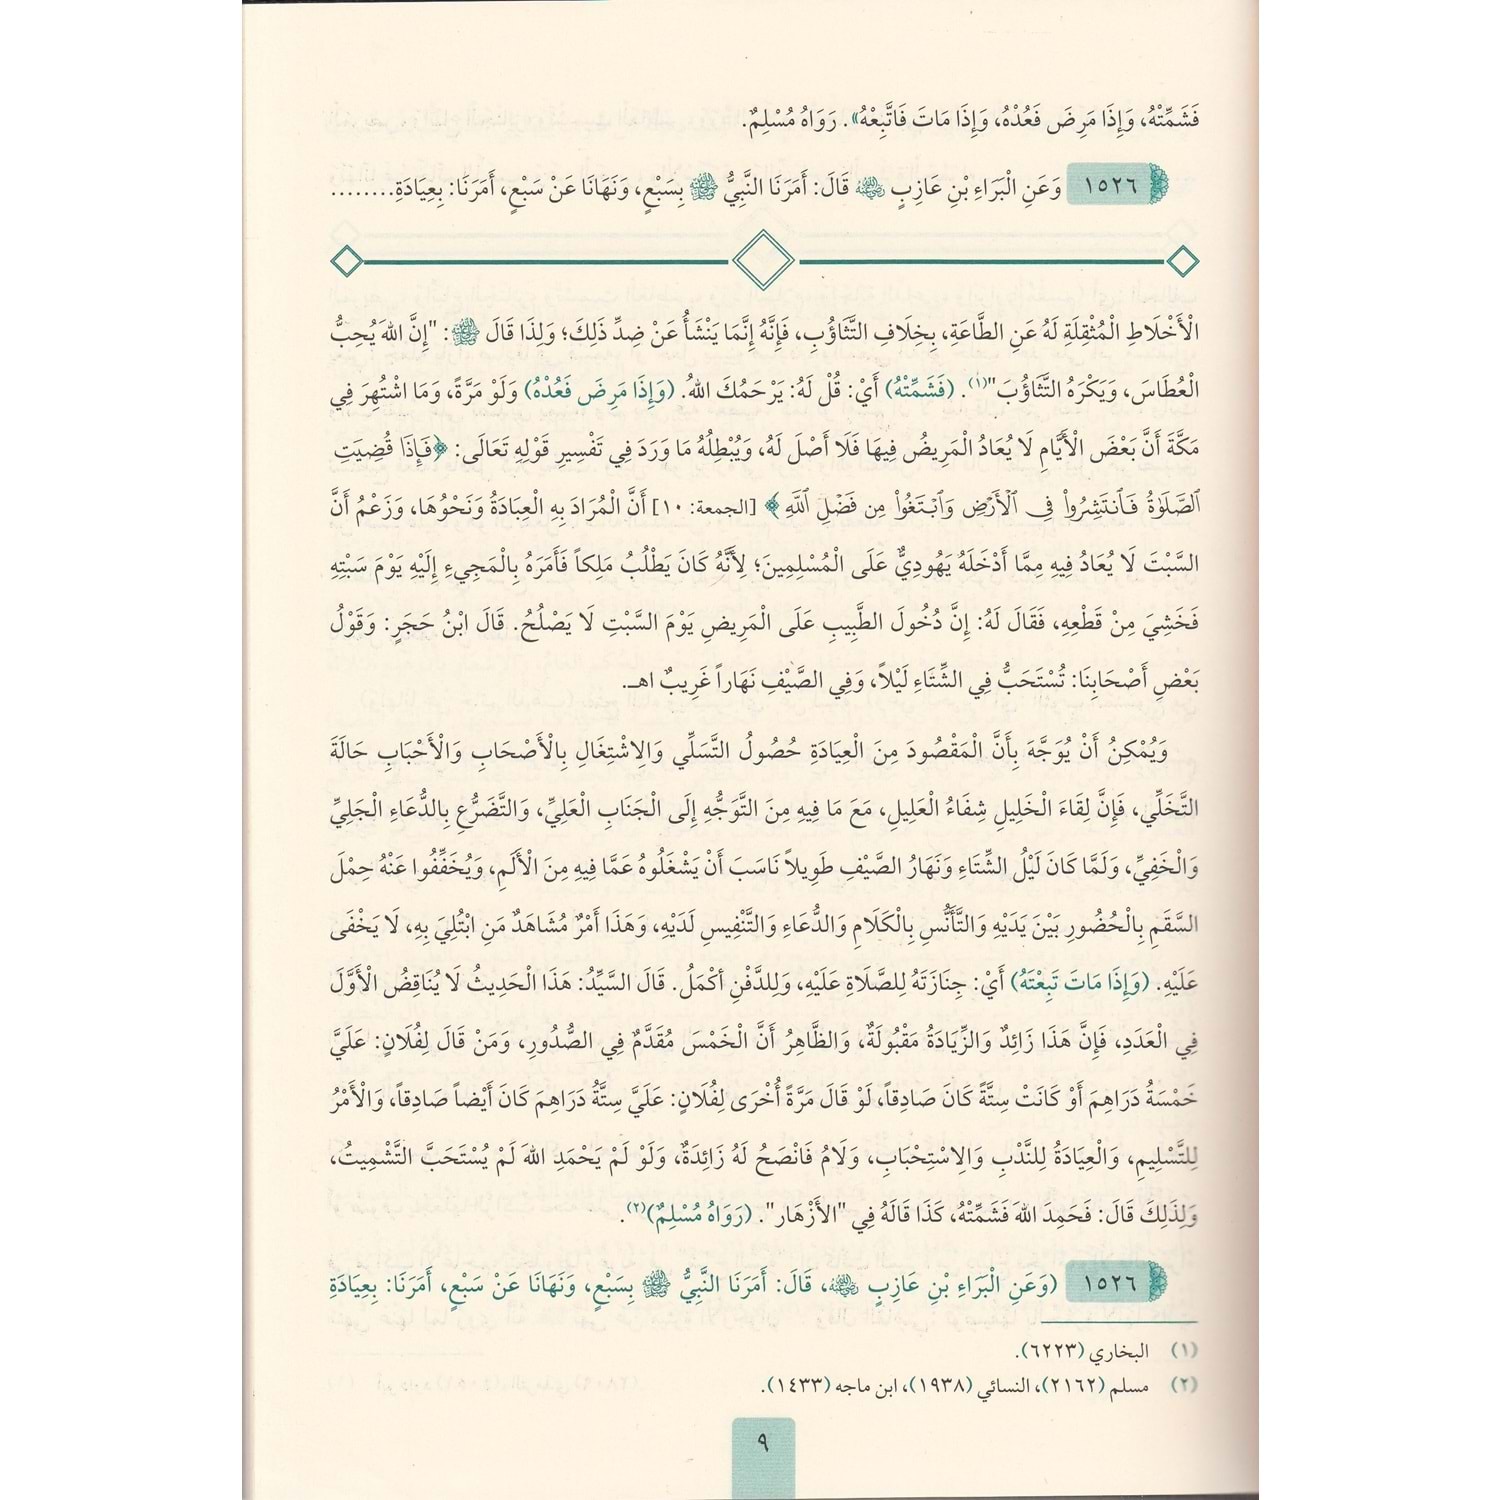 فَشَمِّتْهُ، وَإِذَا مَرِضَ فَعُدْهُ، وَإِذَا مَاتَ فَاتَّبِعْهُ». رَوَاهُ مُسْلِمٌ.
١٥٢٦ وَعَنِ الْبَرَاءِ بْنِ عَازِبٍ ﵁ قَالَ: أَمَرَنَا النَّبِيُّ ﷺ بِسَبْعٍ، وَنَهَانَا عَنْ سَبْعٍ، أَمَرَنَا: بِعِيَادَةِ........
الْأَخْلَاطِ الْمُثْقِلَةِ لَهُ عَنِ الطَّاعَةِ، بِخِلَافِ التَّثَاؤُبِ، فَإِنَّهُ إِنَّمَا يَنْشَأُ عَنْ ضِدِّ ذَلِكَ؛ وَلِذَا قَالَ ﷺ: "إِنَّ اللهَ يُحِبُّ
الْعُطَاسَ، وَيَكْرَهُ التَّثَاؤُبَ"(١). (فَشَمِّتْهُ) أَيْ: قُلْ لَهُ: يَرْحَمُكَ اللهُ. (وَإِذَا مَرِضَ فَعُدْهُ) وَلَوْ مَرَّةً، وَمَا اشْتُهِرَ فِي
مَكَّةَ أَنَّ بَعْضَ الْأَيَّامِ لَا يُعَادُ الْمَرِيضُ فِيهَا فَلَا أَصْلَ لَهُ، وَيُبْطِلُهُ مَا وَرَدَ فِي تَفْسِيرِ قَوْلِهِ تَعَالَى: ﴿فَإِذَا قُضِيَتِ
ٱلصَّلَوٰةُ فَٱنتَشِرُوا۟ فِى ٱلْأَرْضِ وَٱبْتَغُوا۟ مِن فَضْلِ ٱللَّهِ﴾ [الجمعة: ١٠] أَنَّ الْمُرَادَ بِهِ الْعِبَادَةُ وَنَحْوُهَا، وَزَعْمُ أَنَّ
السَّبْتَ لَا يُعَادُ فِيهِ مِمَّا أَدْخَلَهُ يَهُودِيٌّ عَلَى الْمُسْلِمِينَ؛ لِأَنَّهُ كَانَ يَطْلُبُ مَلِكاً فَأَمَرَهُ بِالْمَجِيءِ إِلَيْهِ يَوْمَ سَبْتِهِ
فَخَشِيَ مِنْ قَطْعِهِ، فَقَالَ لَهُ: إِنَّ دُخُولَ الطَّبِيبِ عَلَى الْمَرِيضِ يَوْمَ السَّبْتِ لَا يَصْلُحُ. قَالَ ابْنُ حَجَرٍ: وَقَوْلُ
بَعْضِ أَصْحَابِنَا: تُسْتَحَبُّ فِي الشِّتَاءِ لَيْلاً، وَفِي الصَّيْفِ نَهَاراً غَرِيبٌ اهـ.
وَيُمْكِنُ أَنْ يُوَجَّهَ بِأَنَّ الْمَقْصُودَ مِنَ الْعِيَادَةِ حُصُولُ التَّسَلِّي وَالِاشْتِغَالِ بِالْأَصْحَابِ وَالْأَحْبَابِ حَالَةَ
التَّخَلِّي، فَإِنَّ لِقَاءَ الْخَلِيلِ شِفَاءُ الْعَلِيلِ، مَعَ مَا فِيهِ مِنَ التَّوَجُّهِ إِلَى الْجَنَابِ الْعَلِيِّ، وَالتَّضَرُّعِ بِالدُّعَاءِ الْجَلِيِّ
وَالْخَفِيِّ، وَلَمَّا كَانَ لَيْلُ الشِّتَاءِ وَنَهَارُ الصَّيْفِ طَوِيلاً نَاسَبَ أَنْ يَشْغَلُوهُ عَمَّا فِيهِ مِنَ الْأَلَمِ، وَيُخَفِّفُوا عَنْهُ حِمْلَ
السَّقَمِ بِالْحُضُورِ بَيْنَ يَدَيْهِ وَالتَّأَنُّسِ بِالْكَلَامِ وَالدُّعَاءِ وَالتَّنْفِيسِ لَدَيْهِ، وَهَذَا أَمْرٌ مُشَاهَدٌ مَنِ ابْتُلِيَ بِهِ، لَا يَخْفَى
عَلَيْهِ. (وَإِذَا مَاتَ تَبِعْتَهُ) أَيْ: جِنَازَتَهُ لِلصَّلَاةِ عَلَيْهِ، وَلِلدَّفْنِ أَكْمَلُ. قَالَ السَّيِّدُ: هَذَا الْحَدِيثُ لَا يُنَاقِضُ الْأَوَّلَ
فِي الْعَدَدِ، فَإِنَّ هَذَا زَائِدٌ وَالزِّيَادَةُ مَقْبُولَةٌ، وَالظَّاهِرُ أَنَّ الْخَمْسَ مُقَدَّمٌ فِي الصُّدُورِ، وَمَنْ قَالَ لِفُلَانٍ: عَلَيَّ
خَمْسَةُ دَرَاهِمَ أَوْ كَانَتْ سِتَّةً كَانَ صَادِقاً، لَوْ قَالَ مَرَّةً أُخْرَى لِفُلَانٍ: عَلَيَّ سِتَّةُ دَرَاهِمَ كَانَ أَيْضاً صَادِقاً، وَالْأَمْرُ
لِلتَّسْلِيمِ، وَالْعِيَادَةُ لِلنَّدْبِ وَالِاسْتِحْبَابِ، وَلَامُ فَانْصَحْ لَهُ زَائِدَةٌ، وَلَوْ لَمْ يَحْمَدِ اللهَ لَمْ يُسْتَحَبَّ التَّشْمِيتُ،
وَلِذَلِكَ قَالَ: فَحَمِدَ اللهَ فَشَمِّتْهُ، كَذَا قَالَهُ فِي "الأَزْهَار". (رَوَاهُ مُسْلِمٌ)(٢).
١٥٢٦ (وَعَنِ الْبَرَاءِ بْنِ عَازِبٍ ﵁، قَالَ: أَمَرَنَا النَّبِيُّ ﷺ بِسَبْعٍ، وَنَهَانَا عَنْ سَبْعٍ، أَمَرَنَا: بِعِيَادَةِ
(١) البخاري (٦٢٢٣).
(٢) مسلم (٢١٦٢)، النسائي (١٩٣٨)، ابن ماجه (١٤٣٣).
٩